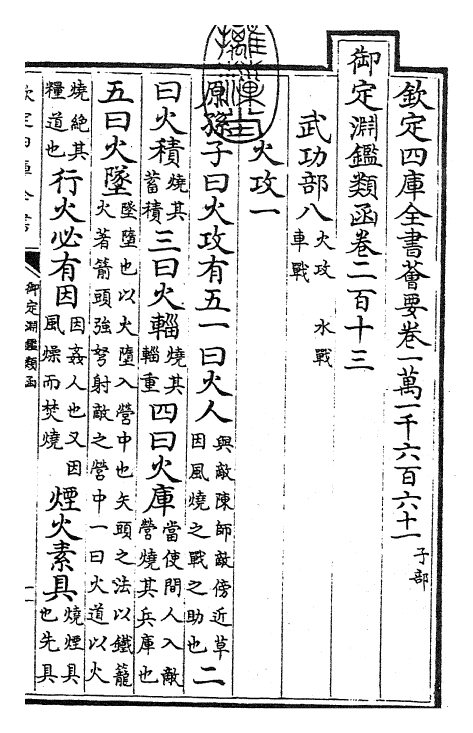 欽定四庫全書薈要卷一萬一千六百六十一 子部
御定淵鑑類函卷二百十三
武功部八 火攻 水戰 車戰
火攻一
原孫子曰火攻有五一曰火人 與敵陳師敵傍近草因風燒之戰之助也 二
曰火積 燒其蓄積 三曰火輜 燒其輜重 四曰火庫 當使間人入敵營燒其兵庫也
五曰火墜 墜墮也以火墮入營中也矢頭之法以鐵籠火著箭頭強弩射敵之營中一曰火道以火
燒絶其糧道也 行火必有因 因姦人也又因風燥而焚燒 煙火素具 燒煙具也先具
欽定四庫全書
御定淵鑑類函